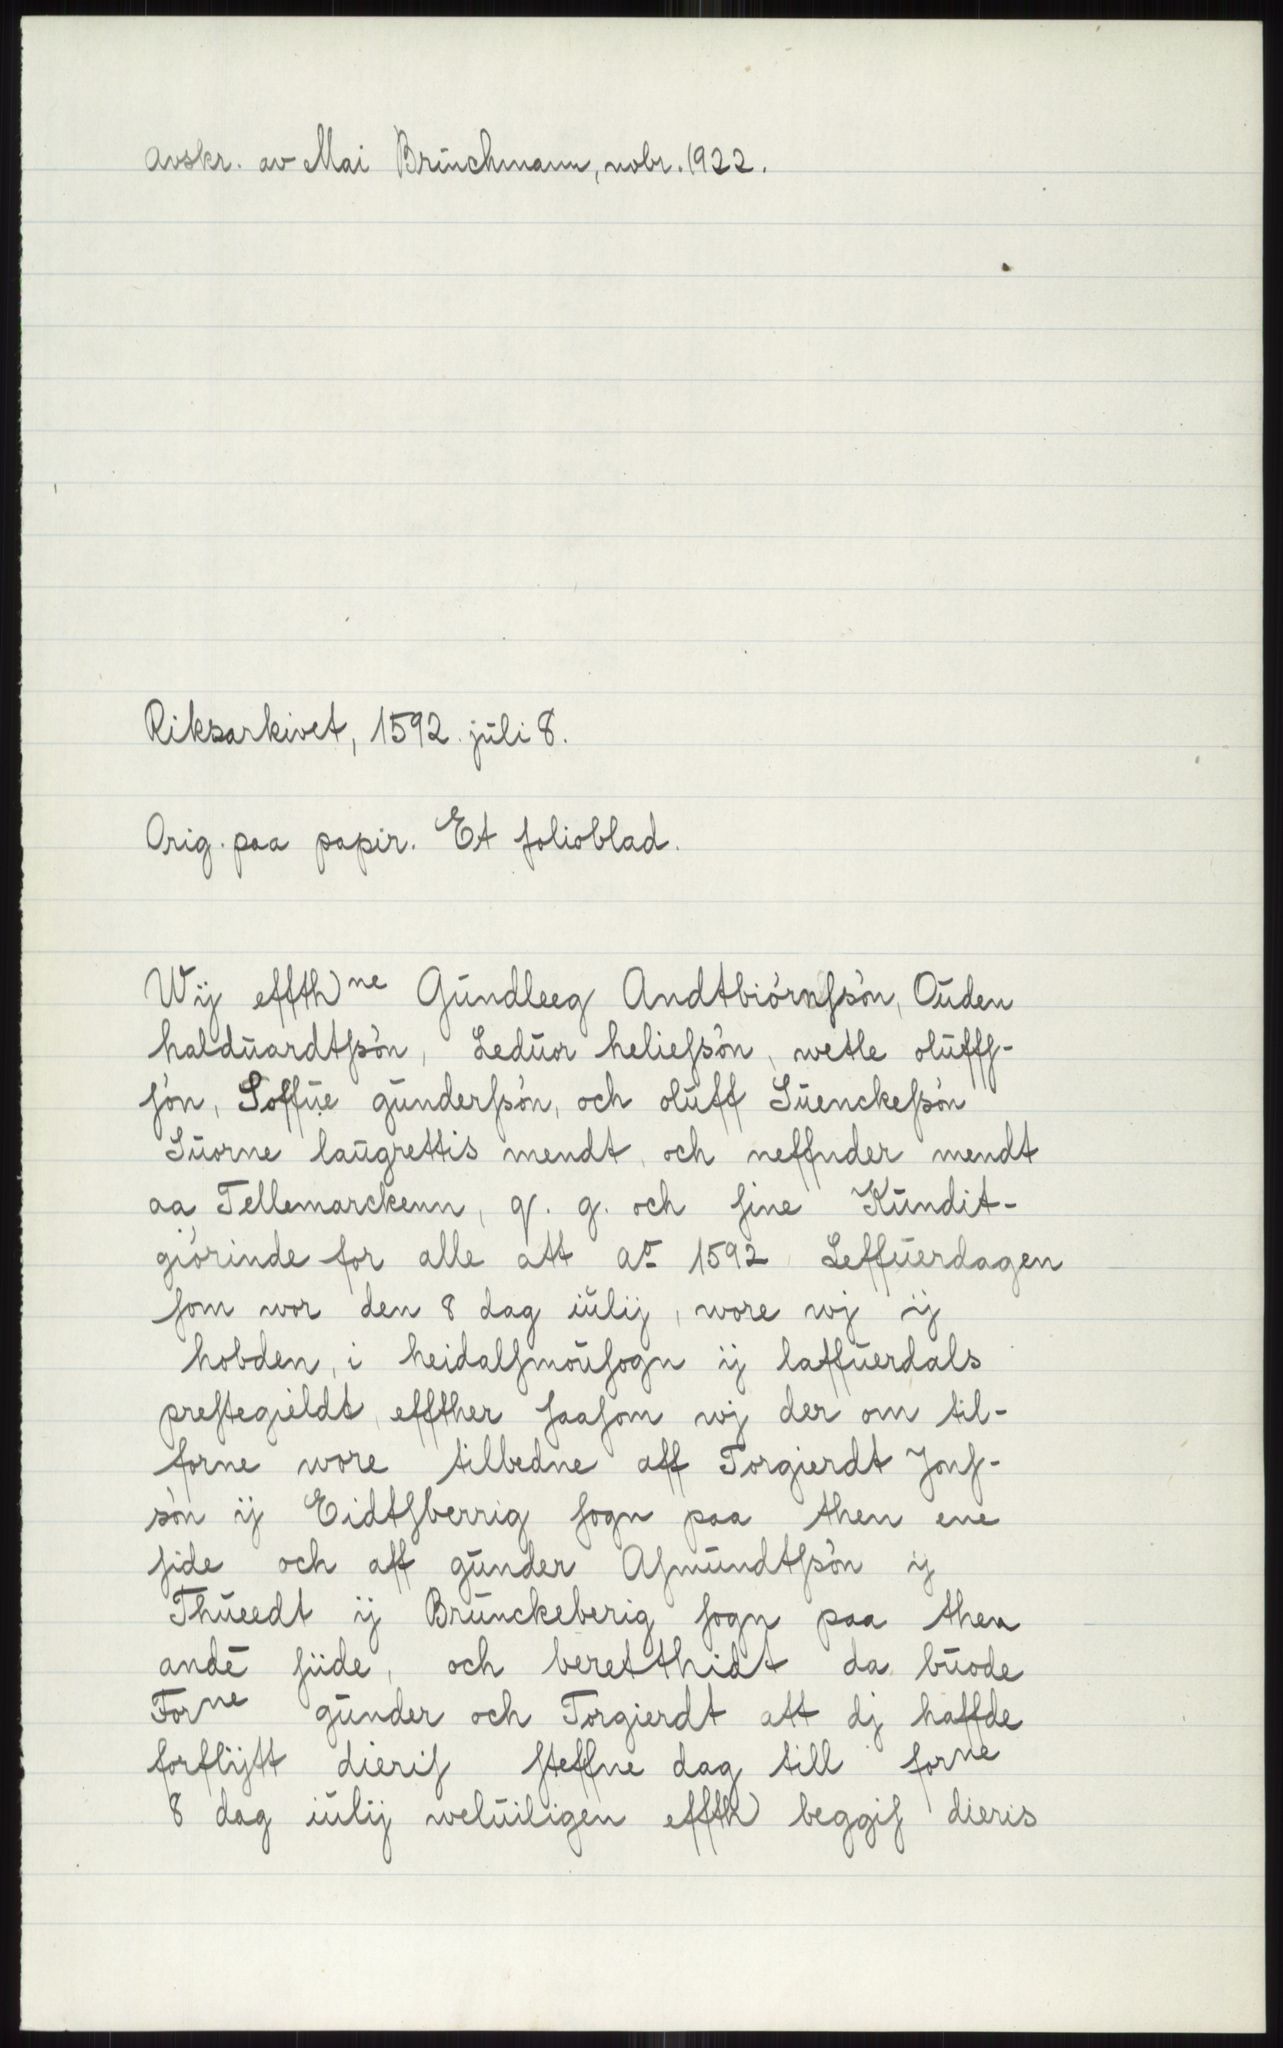 Avskr. av Mai Brünchmann, nobr. 1922.
Riksarkivet, 1592. jüli 8.
Orig. paa papir. Et folioblad.
Wij effth^ne Gündleeg Andtbiörnſsön, Oüden
haldüardtſsön, Ledüor helieſsön, wetle olüffſ-
ſön, Soffüe günderſsön, och olüff Süenckeſsön
Süorne laügrettis mendt, och neffnder mendt
aa Tellemarckenn, q. g. och ſine Kündit-
giörinde for alle att a^o 1592 Leffüerdagen
ſom wor den 8 dag iülij, wore wj ij
hobden, i heidalſmoüſogn ij laffüerdals
preſtegieldt, effther ſaaſom wj der om til-
forne wore tilbedne aff Torgierdt Jonſ-
sön ij Eidtſberrig ſogn paa then ene
ſide och aff günder Aſmündtſsön ij
Thüeedt ij Brünckeberig ſogn paa then
andē ſiide, och beretthidt da büode
For^ne günder och Torgierdt att dj haffde
forflijtt dieriſ ſteffne dag till for^ne
8 dag iülij welüiligen effth beggiſ dieris